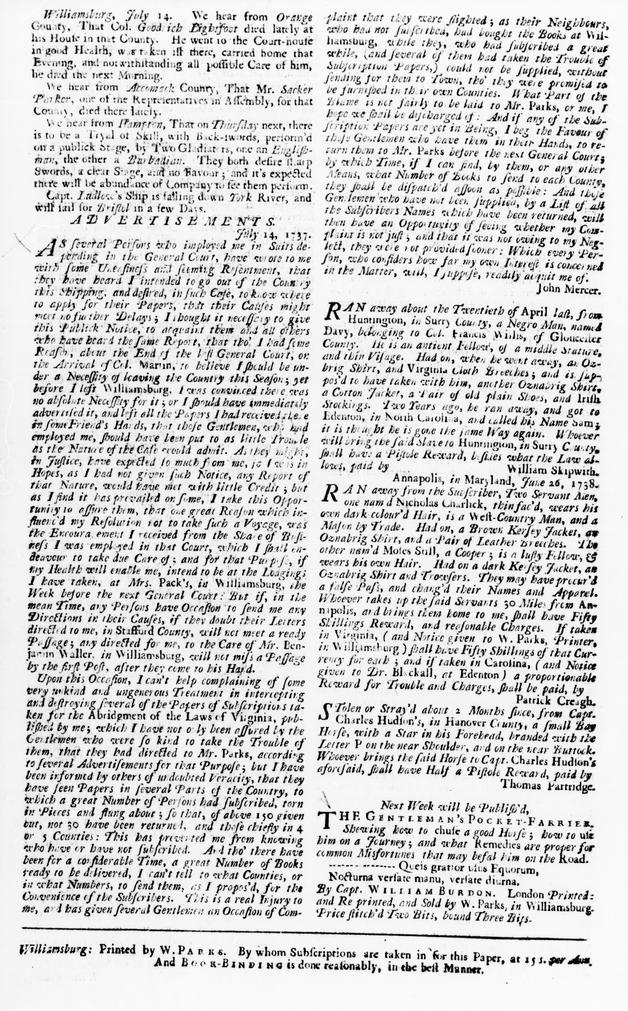 Williamsburg, July 14. We hear from Orange
County, That Col. Goodrich Lightfoot died lately at
his House in that County. He went to the Court-house
in good Health, was taken ill there, carried home that
Evening, and notwithstanding all possible Care of him,
he died the next Morning.
We hear from Accomack County, That Mr. Sacker
Parker, one of the Representatives in Assembly, for that
County, died there lately.
We hear from Hampton, That on Thursday next, there
is to be a Tryal of Skill, with Back-swords, perform'd
on a publick Stage, by Two Gladiators, one an English-
man, the other a Barbadian. They both desire sharp
Swords, a clear Stage, and no Favour; and it's expected
there will be abundance of Company to see them perform.
Capt. Ludlow's Ship is falling down York River, and
will sail for Bristol in a few Days.
ADVERTISEMENTS.
July 14, 1737.
AS several Persons who employed me in Suits de-
pending in the General Court, have wrote to me
with some Uneasiness and seeming Resentment, that
they have heard I intended to go out of the Country
this Shipping, and desired, in such Case, to know where
to apply for their Papers, that their Causes might
meet no further Delays; I thought it necessary to give
this Publick Notice, to acquaint them and all others
who have heard the same Report, that tho' I had some
Reason, about the End of the last General Court, on
the Arrival of Col. Martin, to believe I should be un-
der a Necessity of leaving the Country this Season; yet
before I left Williamsburg, I was convinced there was
no absolute Necessity for it; or I should have immediately
advertised it, and left all the Papers I had received there
in some Friend's Hands, that those Gentlemen, who had
employed me, should have been put to as little Trouble
as the Nature of the Case would admit. As they might,
in Justice, have expected so much from me, so I was in
Hopes, as I had not given such Notice, any Report of
that Nature, would have met with little Credit; but
as I find it has prevailed on some, I take this Oppor-
tunity to assure them, that one great Reason which in-
fluenc'd my Resolution not to take such a Voyage, was
the Encouragement I received from the Share of Busi-
ness I was employed in that Court, which I shall en-
deavour to take due Care of; and for that Purpose, if
my Health will enable me, intend to be at the Lodging;
I have taken, at Mrs. Pack's, in Williamsburg, the
Week before the next General Court: But if, in the
mean Time, any Persons have Occasion to send me any
Directions in their Causes, if they doubt their Letters
directed to me, in Stafford County, will not meet a ready
Passage; any directed for me, to the Care of Mr. Ben-
jamin Waller, in Williamsburg, will not miss a Passage
by the first Post, after they come to his Hand.
Upon this Occasion, I can't help complaining of some
very unkind and ungenerous Treatment in intercepting
and destroying several of the Papers of Subscriptions ta-
ken for the Abridgment of the Laws of Virginia, pub-
lished by me; which I have not only been assured by the
Gentlemen who were so kind to take the Trouble of
them, that they had directed to Mr. Parks, according
to several Advertisements for that Purpose; but I have
been informed by others of undoubted Veracity, that they
have seen Papers in several Parts of the Country, to
which a great Number of Persons had subscribed, torn
in Pieces and flung about; so that, of above 150 given
out, not 30 have been returned, and those chiefly in 4
or 5 Counties: This has prevented me from knowing
who have or have not subscribed. And tho' there have
been for a considerable Time, a great Number of Books
ready to be delivered, I can't tell to what Counties, or
in what Numbers, to send them, as I propos'd, for the
Convenience of the Subscribers. This is a real Injury to
me, and has given several Gentlemen an Occasion of Com-
plaint that they were slighted; as their Neighbours,
who had not subscribed, had bought the Books at Wil-
liamsburg, while they, who had subscribed a great
while, (and several of them had taken the Trouble of
Subscription Papers,) could not be supplied, without
sending for them to Town, tho' they were promised to
be furnished in their own Counties. What Part of the
Blame is not fairly to be laid to Mr. Parks, or me, I
hope we shall be discharged of: And if any of the Sub-
scription Papers are yet in Being, I beg the Favour of
those Gentlemen who have them in their Hands, to re-
turn them to Mr. Parks before the next General Court;
by which Time, if I can find, by them, or any other
Means, what Number of Books to send to each County,
they shall be dispatch'd assoon as possible: And those
Gentlemen who have not been supplied, by a List of all
the Subscribers Names which have been returned, will
then have an Opportunity of seeing whether my Com-
plaint is not just; and that it was not owing to my Neg-
lect, they were not provided sooner: Which every Per-
son, who considers how far my own Interest is concerned
in the Matter, will, I suppose, readily acquit me of.
John Mercer.
RAN away about the Twentieth of April last, from
Hunnington, in Surry County, a Negro Man, named
Davy, belonging to Col. Francis Willis, of Gloucester
County. He is an antient Fellow, of a middle Stature,
and thin Visage. Had on, when he went away, an Oz-
brig Shirt, and Virginia Cloth Breeches; and is sup-
pos'd to have taken with him, another Oznabrig Shirt,
a Cotton Jacket, a Pair of old plain Shoes, and Irish
Stockings. Two Years ago, he ran away, and got to
Edenton, in North Carolina, and called his Name Sam;
it is thought he is gone the same Way again. Whoever
will bring the said Slave to Hunnington, in Surry County,
shall have a Pistole Reward, besides what the Law al-
lows, paid by William Skipwith.
Annapolis, in Maryland, June 26, 1738.
RAN away from the Subscriber, Two Servant Men,
one nam'd Nicholas Charlick, thin fac'd, wears his
own dark-colour'd Hair, is a West-Country Man, and a
Mason by Trade. Had on, a Brown Kersey Jacket, an
Oznabrig Shirt, and a Pair of Leather Breeches. The
other nam'd Moses Sull, a Cooper; is a lusty Fellow, &
wears his own Hair. Had on a dark Kersey Jacket, an
Oznabrig Shirt and Trowsers. They may have procur'd
a false Pass, and chang'd their Names and Apparel.
Whoever takes up the said Servants 30 Miles from An-
napolis, and brings them home to me, shall have Fifty
Shillings Reward, and reasonable Charges. If taken
in Virginia, (and Notice given to W. Parks, Printer,
in Williamsburg) shall have Fifty Shillings of that Cur-
rency for each; and if taken in Carolina, (and Notice
given to Dr. Blackall, at Edenton) a proportionable
Reward for Trouble and Charges, shall be paid, by
Patrick Creagh.
STolen or Stray'd about 2 Months since, from Capt.
Charles Hudson's, in Hanover County, a small Bay
Horse, with a Star in his Forehead, branded with the
Letter P on the near Shoulder, and on the near Buttock.
Whoever brings the said Horse to Capt. Charles Hudson's
aforesaid, shall have Half a Pistole Reward, paid by
Thomas Partridge.
Next Week will be Publish'd,
THE GENTLEMAN'S POCKET-FARRIER.
Shewing how to chuse a good Horse; how to use
him on a Journey; and what Remedies are proper for
common Misfortunes that may befal him on the Road.
- - - - - - - - - - Queis gratior usus Equorum,
Nocturna versate manu, versate diurna.
By Capt. WILLIAM BURDON. London Printed:
and Re printed, and Sold by W. Parks, in Williamsburg.
Price stitch'd Two Bits, bound Three Bits.
Williamsburg: Printed by W. PARKS. By whom Subscriptions are taken in for this Paper, at 15 s. per Ann.
And BOOK-BINDING is done reasonably, in the best Manner.